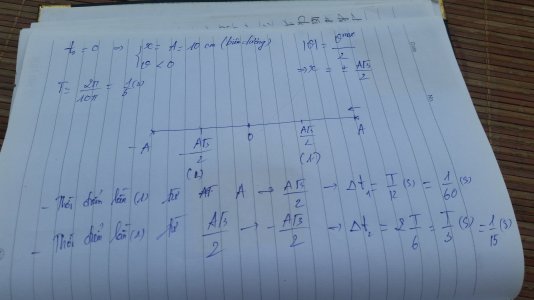 t₀ = 0 ⇒ { x = A = 10 cm (biên dương)
v < 0
|v| = vmax/2
⇒ x = ± A√3/2
T = 2π/10π = 1/5 (s)
-A -A√3/2 O A√3/2 A
(2) (1)
- Thời điểm lần (1) từ A → A√3/2 → Δt₁ = T/12 (s) = 1/60 (s)
- Thời điểm lần (2) từ A√3/2 → -A√3/2 → Δt₂ = 2 T/6 = T/3 (s) = 1/15 (s)